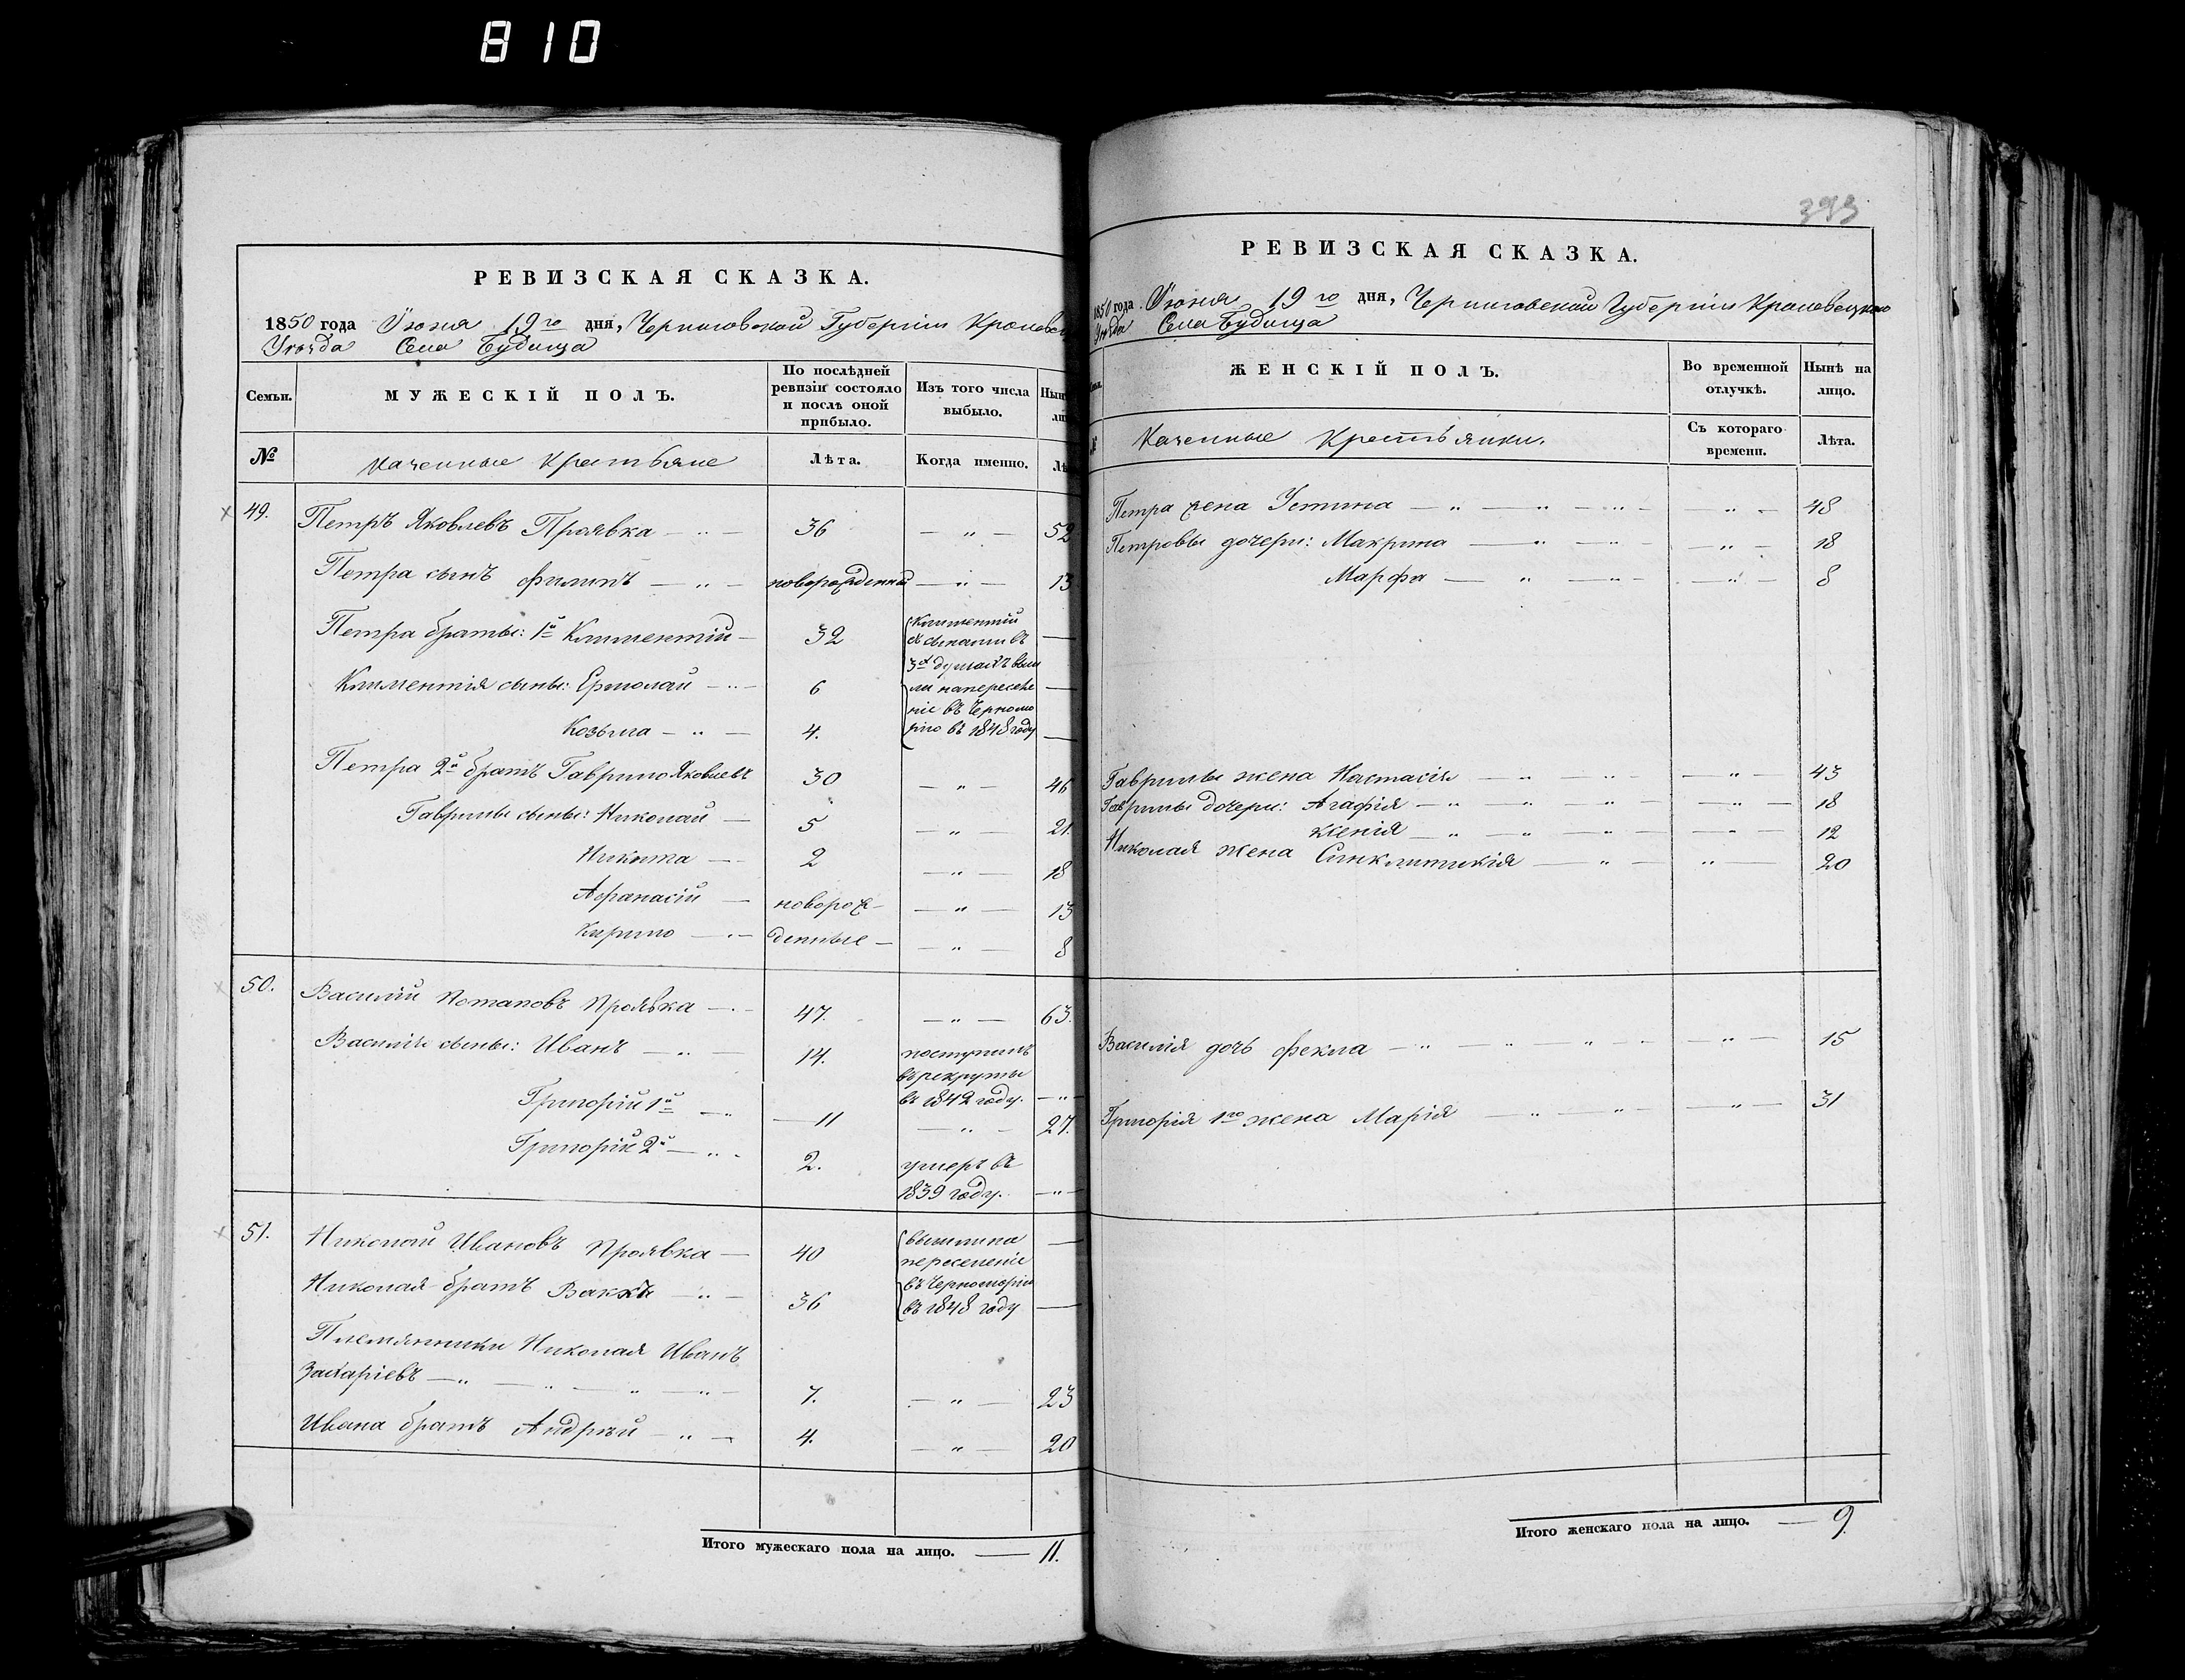 810
РЕВИЗСКАЯ СКАЗКА.
1850 года Іюня 19го дня, Черниговской Губерніи Кролевец
Уѣзда Села Будища
Семьи.
МУЖЕСКІЙ ПОЛЪ.
По послѣдней ревизіи состояло и послѣ оной прибыло.
Изъ того числа выбыло.
Нын
ли
№
Казенные Крестьяне
Лѣта.
Когда именно.
Лѣ
49. Петръ Яковлевъ Проявка — „ — 36 — „ — 52
Петра сынъ Филипъ — „ — новорожденный — „ — 13
Петра братья: 1й Климентій — 32 —
Климентія сыны: Ермолай — „ — 6 —
Козьма — „ — 4. —
Климентій
съ сынами въ
3х душахъ вышли
на переселеніе
въ Черноморію
въ 1848 году
Петра 2й братъ Гаврило Яковлевъ 30 — „ — 46
Гаврилы сыны: Николай — 5 — „ — 21.
Никита — 2 — „ — 18
Афанасій — новорож- — „ — 13
Кирило — „ — денные — — „ — 8
50. Василій Потаповъ Проявка — „ — 47. — „ — 63.
Василія сыны: Иванъ — „ 14. поступилъ
въ рекруты
въ 1842 году. — „ —
Григорій 1й — „ — 11 — „ — 27.
Григорій 2й — „ - 2. умеръ въ
1839 году. — „ —
51. Николай Ивановъ Проявка — 40 —
Николая братъ — „ — 36 —
вышли на
переселеніе
въ Черноморію
въ 1848 году
Племянники Николая Иванъ
Захаріевъ — „ — „ — „ — „ — 7. — „ — 23
Ивана братъ Андрей — „ — 4. — „ — 20
Итого мужескаго пола на лицо. — 11.
393
РЕВИЗСКАЯ СКАЗКА.
1850 года Іюня 19го дня, Черниговской Губерніи Кролевецкаго
Уѣзда Села Будища
ЖЕНСКІЙ ПОЛЪ.
Во временной отлучкѣ.
Нынѣ на лицо.
№
Казенные Крестьянки.
Съ котораго времени.
Лѣта.
Петра жена Устина — „ — „ — „ — „ — 48
Петровы дочери: Макрина — „ — „ — „ — 18
Марфа — „ — „ — „ — 8
Гаврилы жена Настасія — „ — „ — „ — 43
Гаврилы дочери: Агафія — „ — „ — „ — „ — 18
Ксенія — „ — „ — „ — „ — 12
Николая жена Синклитикія — „ — „ — 20
Василія дочь Фекла — „ — „ — „ — „ — 15
Григорія 1го жена Марія — „ — „ — „ — 31
Итого женскаго пола на лицо. — 9.